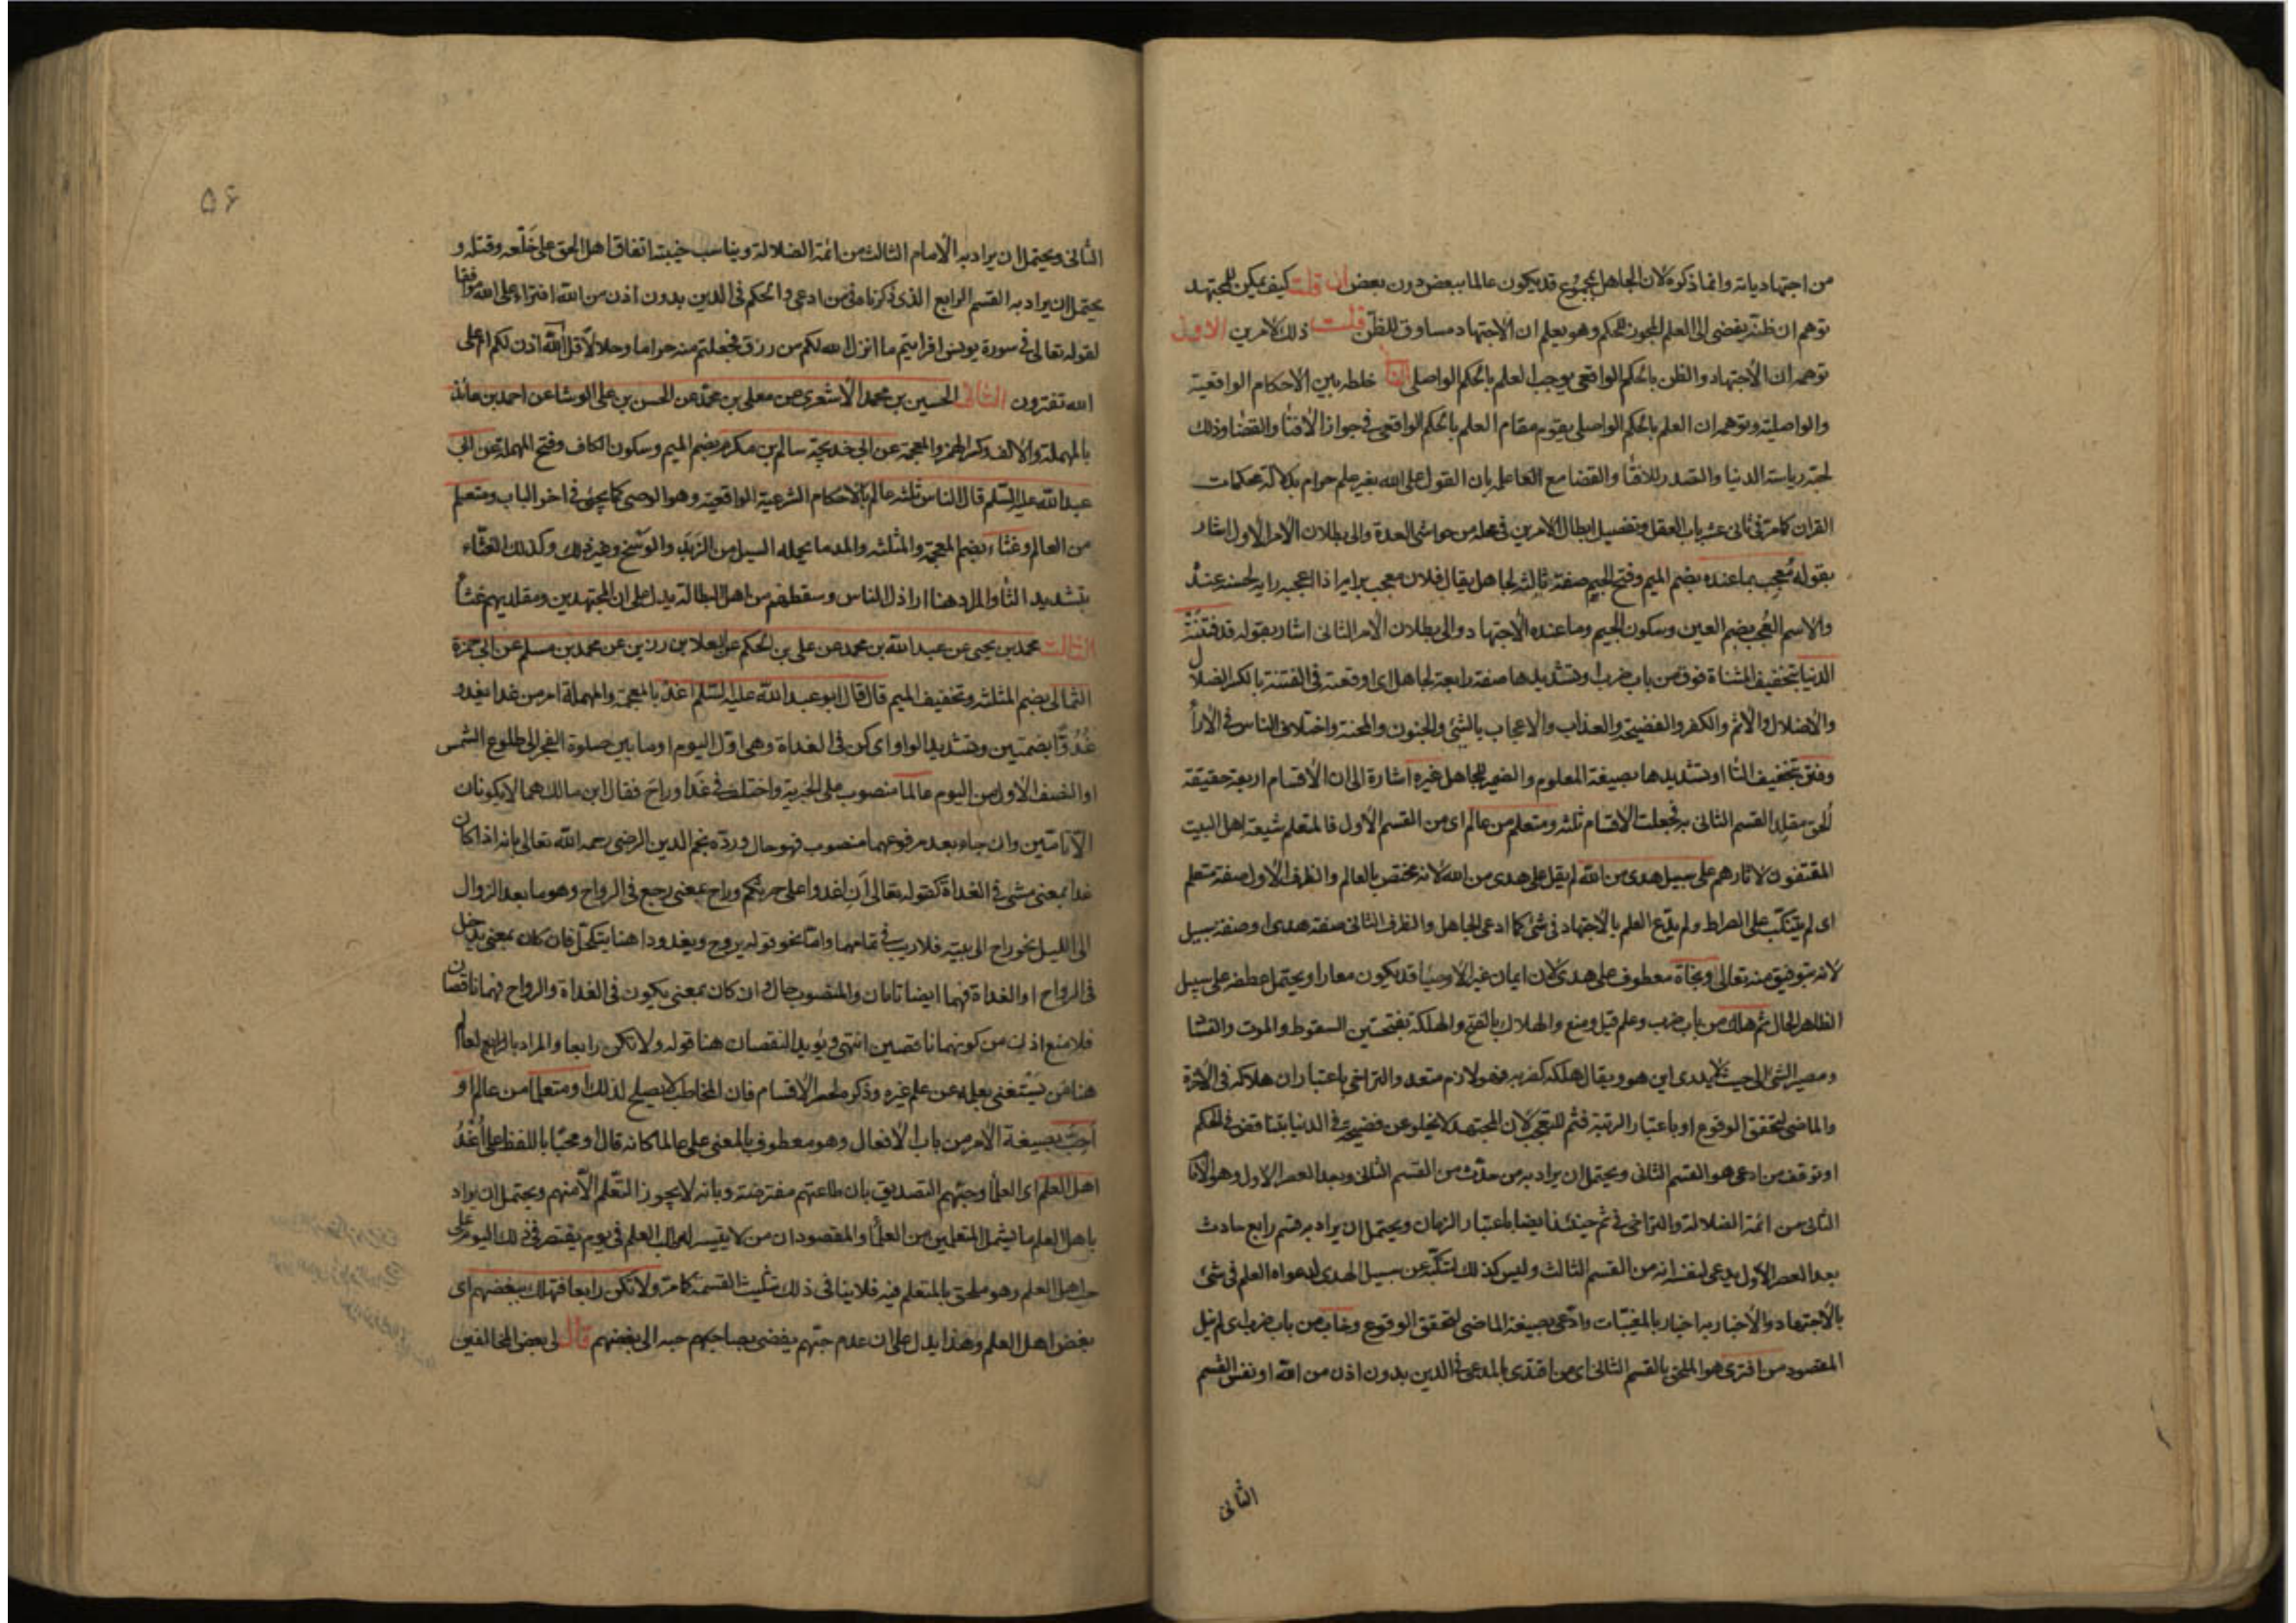 من اجتهادياته وانما ذكره لان الجاهل بمجموع قد يكون عالما ببعض دون بعض ان قلت كيف يمكن للمجتهد
توهم ان ظنه يفضى الى العلم المجوز للحكم وهو يعلم ان الاجتهاد مساوق للظن قلت ذلك لامرين الاول
توهمه ان الاجتهاد والظن بالحكم الواقعى يوجب العلم بالحكم الواصلى خلطه بين الاحكام الواقعية
والواصلية وتوهمه ان العلم بالحكم الواصلى يقوم مقام العلم بالحكم الواقعى فى جواز الافتا والقضا وذلك
لحبه رياسة الدنيا والتصدر للافتا والقضا مع الغا علمه بان القول على الله بغير علم حرام بدلالة محكمات
القران كما مر فى ثانى عشر باب العقل وتفصيل ابطال الامرين فى محله من حواشى العدة والى بطلان الامر الاول اشار
بقوله مُعجب بما عنده بضم الميم وفتح الجيم صفة ثالثة لجاهل يقال فلان معجب برايه اذا اعجبه رايه لحسنه عنده
والاسم العُجب بضم العين وسكون الجيم وما عنده الاجتهاد والى بطلان الامر الثانى اشار بقوله قد فتنته
الدنيا بتخفيف المثناة فوق من باب ضرب او تشديدها صفة رابعة لجاهل اى اوقعته فى الفتنة بالكسر الضلال
والاضلال والاثم والكفر والفضيحة والعذاب والاعجاب بالشئ والجنون والمحنة واختلاف الناس فى الارا
وفتن بتخفيف التا او تشديدها بصيغة المعلوم والضمير للجاهل غيره اشارة الى ان الاقسام اربعة حقيقة
اُلحق مقلد القسم الثانى به فجعلت الاقسام ثلثة ومتعلم من عالم اى من القسم الاول فالمتعلم شيعة اهل البيت
المقتفون لاثارهم على سبيل هدى من الله لم يقل على هدى من الله لانه مختص بالعالم والظرف الاول صفة متعلم
اى لم يتنكب على الصراط ولم يدّع العلم بالاجتهاد فى شئ كما ادعى الجاهل والظرف الثانى صفة هدى او صفة سبيل
لانه بتوفيق منه تعالى ونجاة معطوف على هدى لان ايمان غير الاوصيا قد يكون معارا ويحتمل عطفه على سبيل
الظاهر الحال ثم هلك من باب ضرب وعلم قيل ومنع والهلاك بالفتح والهلكة بفتحتين السقوط والموت والفساد
ومصير الشئ الى حيث لا يدرى اين هو ويقال هلكه كضربه فهو لازم متعد والتراخى باعتبار ان هلاكه فى الاخرة
والماضى لتحقق الوقوع او باعتبار الرتبة فثم للتعجب لان المجتهد لا يخلو عن فضيحة فى الدنيا بتناقض فى الحكم
او توقف من ادعى هو القسم الثانى ويحتمل ان يراد به من حدث من القسم الثانى وبعد العصر الاول وهو الامام
الثانى من ائمة الضلالة والتراخى فى ثم حينئذ ايضا باعتبار الزمان ويحتمل ان يراد به قسم رابع حادث
بعد العصر الاول يدعى لنفسه انه من القسم الثالث وليس كذلك لتنكبه عن سبيل الهدى لدعواه العلم فى شئ
بالاجتهاد والاخبار به اخبار بالمغيبات وادّعى بصيغة الماضى لتحقق الوقوع وخاب من باب ضرب اى لم ينل
المقصود من افترى هو الملحق بالقسم الثانى اى من اقتدى بالمدعى فى الدين بدون اذن من الله او نفس القسم
الثانى
۵۶
الثانى ويحتمل ان يراد به الامام الثالث من ائمة الضلالة ويناسب خيبته اتفاق اهل الحق على خلعه وقتله و
يحتمل ان يراد به القسم الرابع الذى ذكرنا فى من ادعى والحكم فى الدين بدون اذن من الله افتراء على الله موافقا
لقوله تعالى فى سورة يونس افرايتم ما انزل الله لكم من رزق فجعلتم منه حراما وحلالا قل الله اذن لكم ام على
الله تفترون الثانى الحسين بن محمد الاشعرى عن معلى بن محمد عن الحسن بن على الوشا عن احمد بن عائذ
بالمهملة والالف وكسر الهمزة والمعجمة عن ابى خديجة سالم بن مكرم بضم الميم وسكون الكاف وفتح المهملة عن ابى
عبد الله عليه السلم قال الناس ثلثة عالم بالاحكام الشرعية الواقعية وهو الوصى كما يجئ فى اخر الباب ومتعلم
من العالم وغثاء بضم المعجمة والمثلثة والمد ما يحمله السيل من الزبد والوسخ وغير ذلك وكذلك الغثاء
بتشديد الثا والمراد هنا اراذل الناس وسقطهم من اهل البطالة يدل على ان المجتهدين ومقلديهم غثا
الثالث محمد بن يحيى عن عبد الله بن محمد عن على بن الحكم عن العلا بن رزين عن محمد بن مسلم عن ابى حمزة
الثمالى بضم المثلثة وتخفيف الميم قال قال ابو عبد الله عليه السلم اغد بالمعجمة والمهملة امر من غدا يغدو
غُدُوًّا بضمتين وتشديد الواو اى كن فى الغداة وهى اول اليوم او ما بين صلوة الفجر الى طلوع الشمس
او النصف الاول من اليوم عالما منصوب على الخبرية واختلف فى غدا وراح فقال ابن مالك هما لا يكونان
الا تامتين وان جاء بعد مرفوعهما منصوب فهو حال وردّه نجم الدين الرضى رحمه الله تعالى بانه اذا كان
غدا بمعنى مشى فى الغداة كقوله تعالى ان اغدوا على حرثكم وراح بمعنى رجع فى الرواح وهو ما بعد الزوال
الى الليل نحو راح الى بيته فلا ريب فى تمامهما واما نحو قوله يروح ويغدو داهنا يتكحّل فان كان بمعنى يدخل
فى الرواح او الغداة فهما ايضا تامان والمنصوب حال وان كان بمعنى يكون فى الغداة والرواح فهما ناقصان
فلا منع اذن من كونهما ناقصين انتهى ويؤيد النقصان هنا قوله ولا تكن رابعا والمراد بالعالم
هنا من يستغنى بعلمه عن علم غيره وذكره لحصر الاقسام فان المخاطب لا يصلح لذلك او متعلما من عالم او
اَحِبّ بصيغة الامر من باب الافعال وهو معطوف بالمعنى على عالما كانه قال او محبا باللفظ على اُغْدُ
اهل العلم اى العلما وحبهم التصديق بان طاعتهم مفترضة وبانه لا يجوز التعلم الا منهم ويحتمل ان يراد
باهل العلم ما يشمل المتعلمين من العلما والمقصود ان من لا يتيسر له طلب العلم فى يوم يقتصر فى ذلك اليوم على
حب اهل العلم وهو ملحق بالمتعلم فيه فلا ينافى ذلك تثليث القسمة كما مر ولا تكن رابعا فتهلك ببغضهم اى
بغض اهل العلم وهذا يدل على ان عدم حبهم يفضى بصاحبهم حبه الى بغضهم قال لى بعض المخالفين